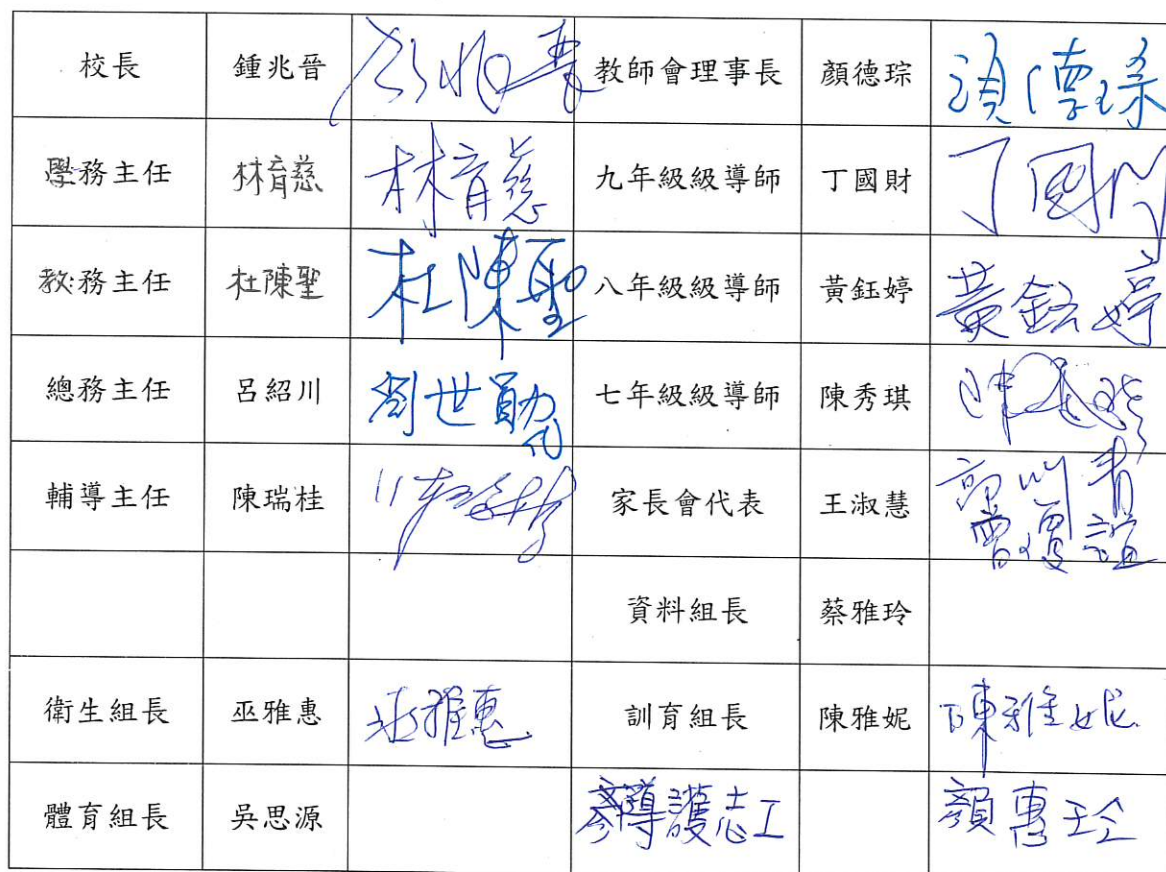 校長 鍾兆晉 鍾兆晉 教師會理事長 顏德琮 顏德琮
學務主任 林育慈 林育慈 九年級級導師 丁國財 丁國財
教務主任 杜陳聖 杜陳聖 八年級級導師 黃鈺婷 黃鈺婷
總務主任 呂紹川 劉世勛代 七年級級導師 陳秀琪 陳秀琪
輔導主任 陳瑞桂 家長會代表 王淑慧
資料組長 蔡雅玲
衛生組長 巫雅惠 巫雅惠 訓育組長 陳雅妮 陳雅妮
體育組長 吳思源 導護志工 顏惠玲